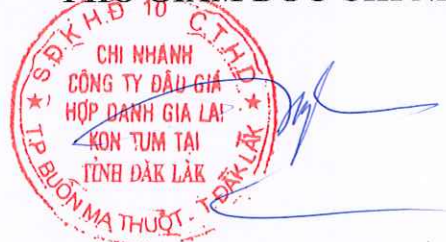 S.Đ.K.H.Đ 10 C.T.H.D
CHI NHÁNH
CÔNG TY ĐẤU GIÁ
HỢP DANH GIA LAI
KON TUM TẠI
TỈNH ĐẮK LẮK
T.P BUÔN MA THUỘT - T. ĐẮK LẮK